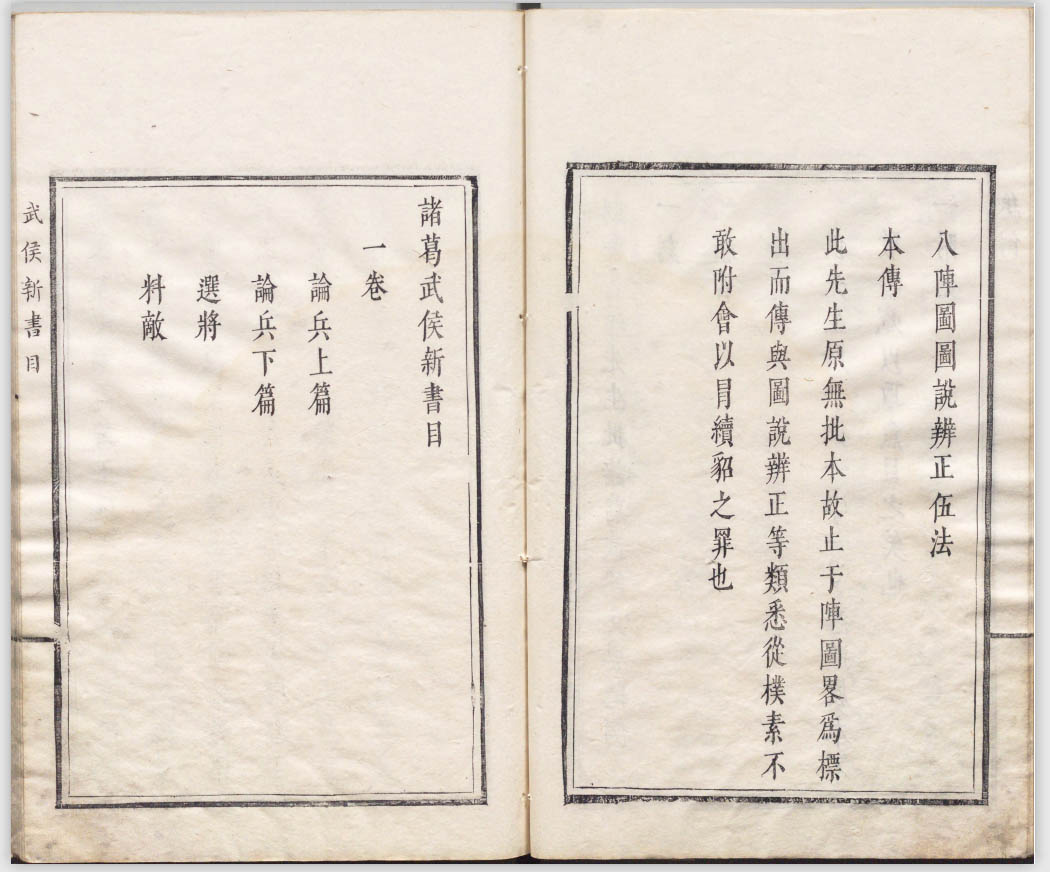 八陣圖圖說辨正伍法
本傳
此先生原無批本故止于陣圖畧爲標
出而傳與圖說辨正等類悉從樸素不
敢附會以冐續貂之罪也
諸葛武侯新書目
一卷
論兵上篇
論兵下篇
選將
料敵
武侯新書目